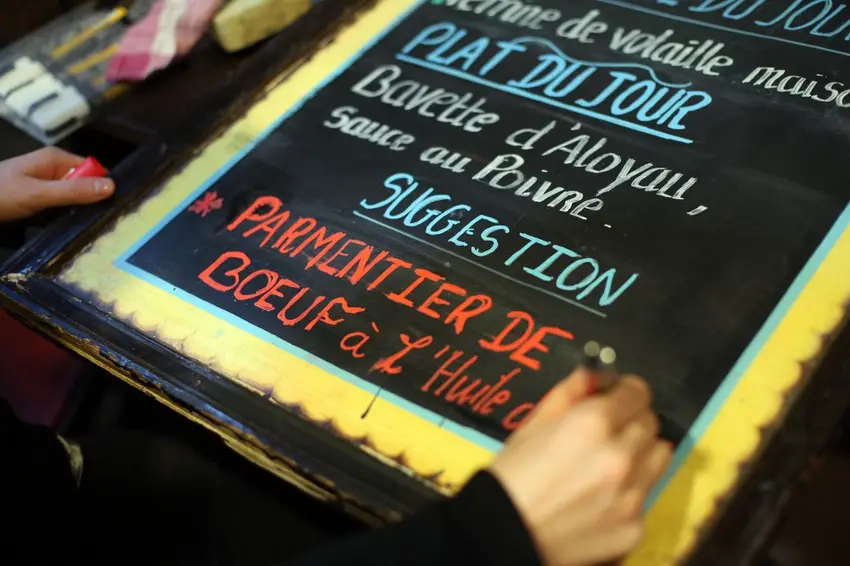 DU JOUR
de volaille maison
PLAT DU JOUR
Bavette d'Aloyau,
Sauce au Poivre.
SUGGESTION
* PARMENTIER DE
BOEUF à L'Huile d